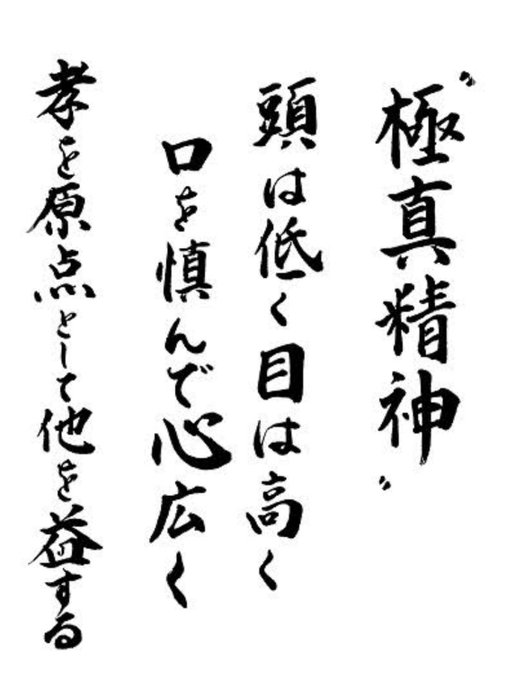 〝極真精神〟
頭は低く目は高く
口を慎んで心広く
孝を原点として他を益する